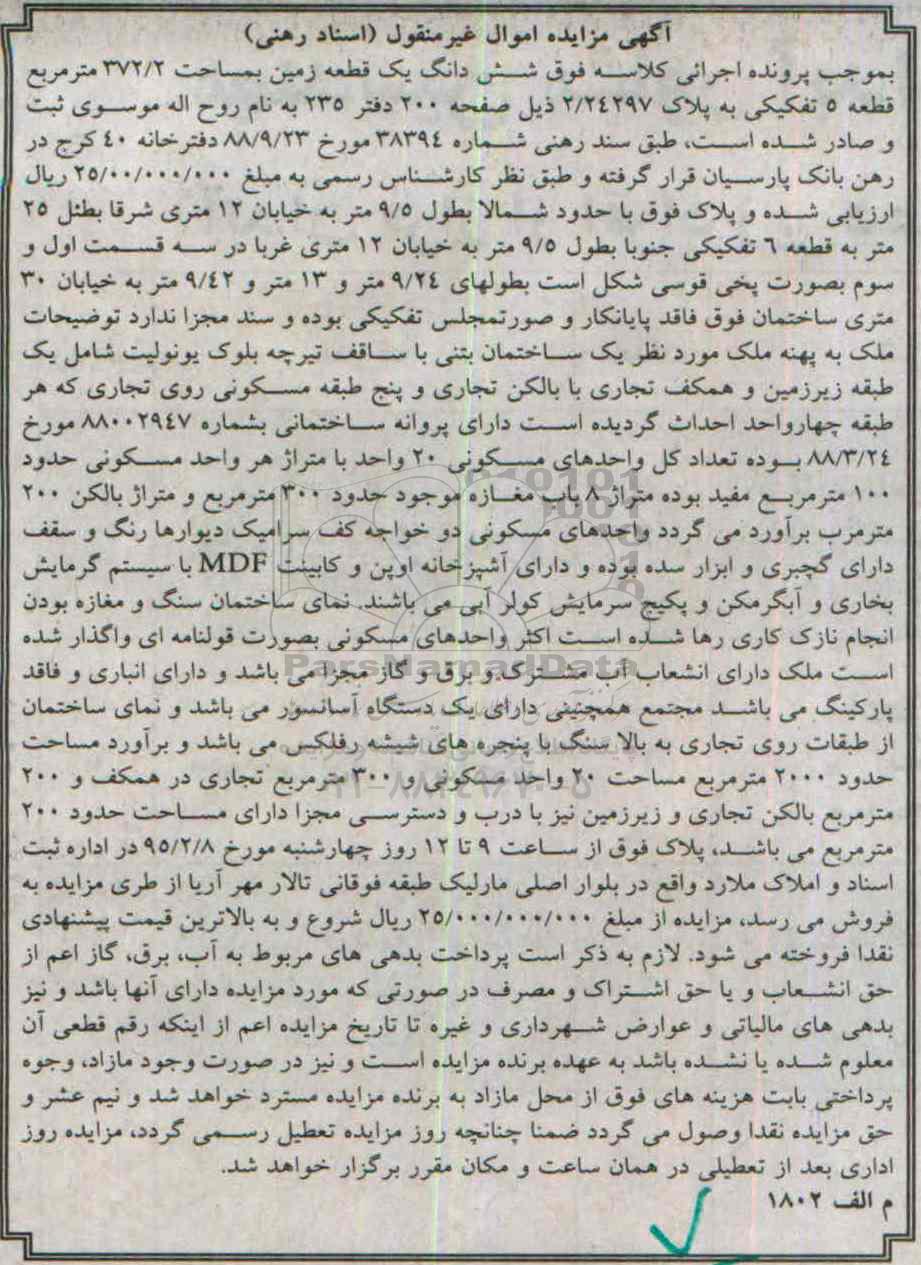 آگهی مزایده اموال غیرمنقول (اسناد رهنی)
بموجب پرونده اجرائی کلاسه فوق شش دانگ یک قطعه زمین بمساحت ۳۷۲/۲ مترمربع
قطعه ۵ تفکیکی به پلاک ۲/۲٤۲۹۷ ذیل صفحه ۲۰۰ دفتر ۲۳۵ به نام روح اله موسوی ثبت
و صادر شده است، طبق سند رهنی شماره ۳۸۳۹٤ مورخ ۸۸/۹/۲۳ دفترخانه ٤۰ کرج در
رهن بانک پارسیان قرار گرفته و طبق نظر کارشناس رسمی به مبلغ ۲۵/۰۰/۰۰۰/۰۰۰ ریال
ارزیابی شده و پلاک فوق با حدود شمالا بطول ۹/۵ متر به خیابان ۱۲ متری شرقا بطئل ۲۵
متر به قطعه ٦ تفکیکی جنوبا بطول ۹/۵ متر به خیابان ۱۲ متری غربا در سه قسمت اول و
سوم بصورت پخی قوسی شکل است بطولهای ۹/۲٤ متر و ۱۳ متر و ۹/٤۲ متر به خیابان ۳۰
متری ساختمان فوق فاقد پایانکار و صورتمجلس تفکیکی بوده و سند مجزا ندارد توضیحات
ملک به پهنه ملک مورد نظر یک ساختمان بتنی با ساقف تیرچه بلوک یونولیت شامل یک
طبقه زیرزمین و همکف تجاری با بالکن تجاری و پنج طبقه مسکونی روی تجاری که هر
طبقه چهارواحد احداث گردیده است دارای پروانه ساختمانی بشماره ۸۸۰۰۲۹٤۷ مورخ
۸۸/۳/۲٤ بوده تعداد کل واحدهای مسکونی ۲۰ واحد با متراژ هر واحد مسکونی حدود
۱۰۰ مترمربع مفید بوده متراژ ۸ باب مغازه موجود حدود ۳۰۰ مترمربع و متراژ بالکن ۲۰۰
مترمرب برآورد می گردد واحدهای مسکونی دو خواجه کف سرامیک دیوارها رنگ و سقف
دارای گچبری و ابزار سده بوده و دارای آشپزخانه اوپن و کابینت MDF با سیستم گرمایش
بخاری و آبگرمکن و پکیج سرمایش کولر آبی می باشند. نمای ساختمان سنگ و مغازه بودن
انجام نازک کاری رها شده است اکثر واحدهای مسکونی بصورت قولنامه ای واگذار شده
است ملک دارای انشعاب آب مشترک و برق و گاز مجزا می باشد و دارای انباری و فاقد
پارکینگ می باشد مجتمع همچنینی دارای یک دستگاه آسانسور می باشد و نمای ساختمان
از طبقات روی تجاری به بالا سنگ با پنجره های شیشه رفلکس می باشد و برآورد مساحت
حدود ۲۰۰۰ مترمربع مساحت ۲۰ واحد مسکونی و ۳۰۰ مترمربع تجاری در همکف و ۲۰۰
مترمربع بالکن تجاری و زیرزمین نیز با درب و دسترسی مجزا دارای مساحت حدود ۲۰۰
مترمربع می باشد، پلاک فوق از ساعت ۹ تا ۱۲ روز چهارشنبه مورخ ۹۵/۲/۸ در اداره ثبت
اسناد و املاک ملارد واقع در بلوار اصلی مارلیک طبقه فوقانی تالار مهر آریا از طری مزایده به
فروش می رسد، مزایده از مبلغ ۲۵/۰۰۰/۰۰۰/۰۰۰ ریال شروع و به بالاترین قیمت پیشنهادی
نقدا فروخته می شود. لازم به ذکر است پرداخت بدهی های مربوط به آب، برق، گاز اعم از
حق انشعاب و یا حق اشتراک و مصرف در صورتی که مورد مزایده دارای آنها باشد و نیز
بدهی های مالیاتی و عوارض شهرداری و غیره تا تاریخ مزایده اعم از اینکه رقم قطعی آن
معلوم شده یا نشده باشد به عهده برنده مزایده است و نیز در صورت وجود مازاد، وجوه
پرداختی بابت هزینه های فوق از محل مازاد به برنده مزایده مسترد خواهد شد و نیم عشر و
حق مزایده نقدا وصول می گردد ضمنا چنانچه روز مزایده تعطیل رسمی گردد، مزایده روز
اداری بعد از تعطیلی در همان ساعت و مکان مقرر برگزار خواهد شد.
م الف ۱۸۰۲
ParsNamadData